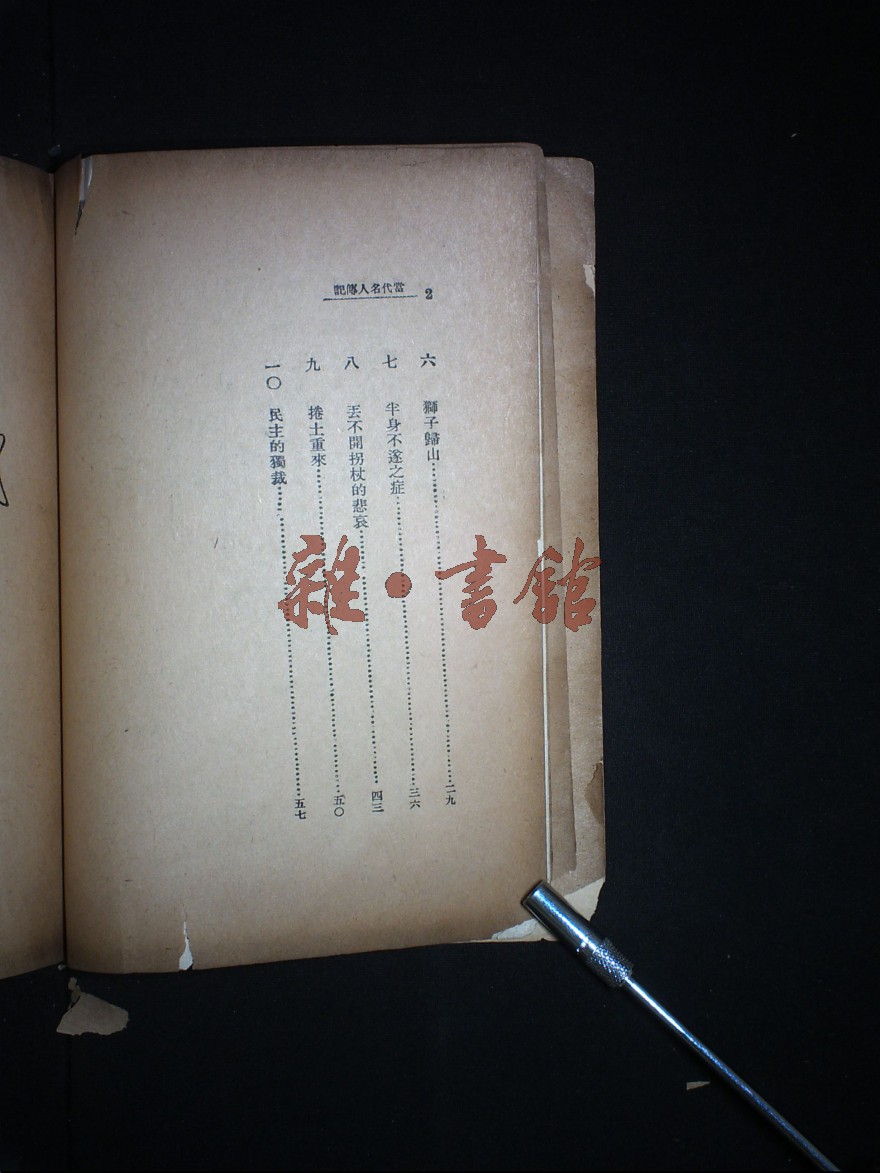 當代名人傳記 2
六 獅子歸山 二九
七 半身不遂之症 三六
八 丟不開拐杖的悲哀 四三
九 捲土重來 五〇
一〇 民主的獨裁 五七
雜·書館